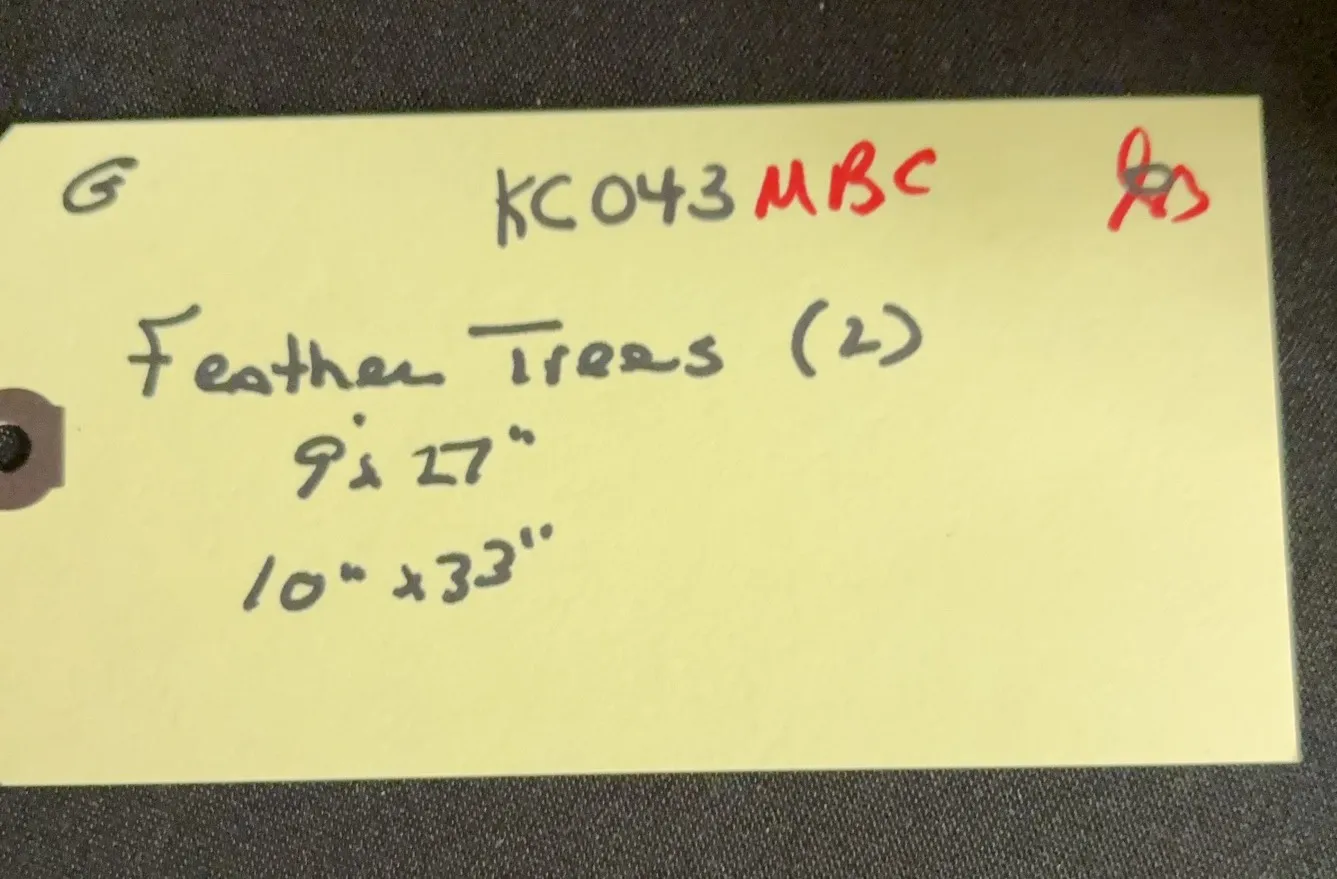 G KC043 MBC
Feather Trees (2)
9" x 27"
10" x 33"